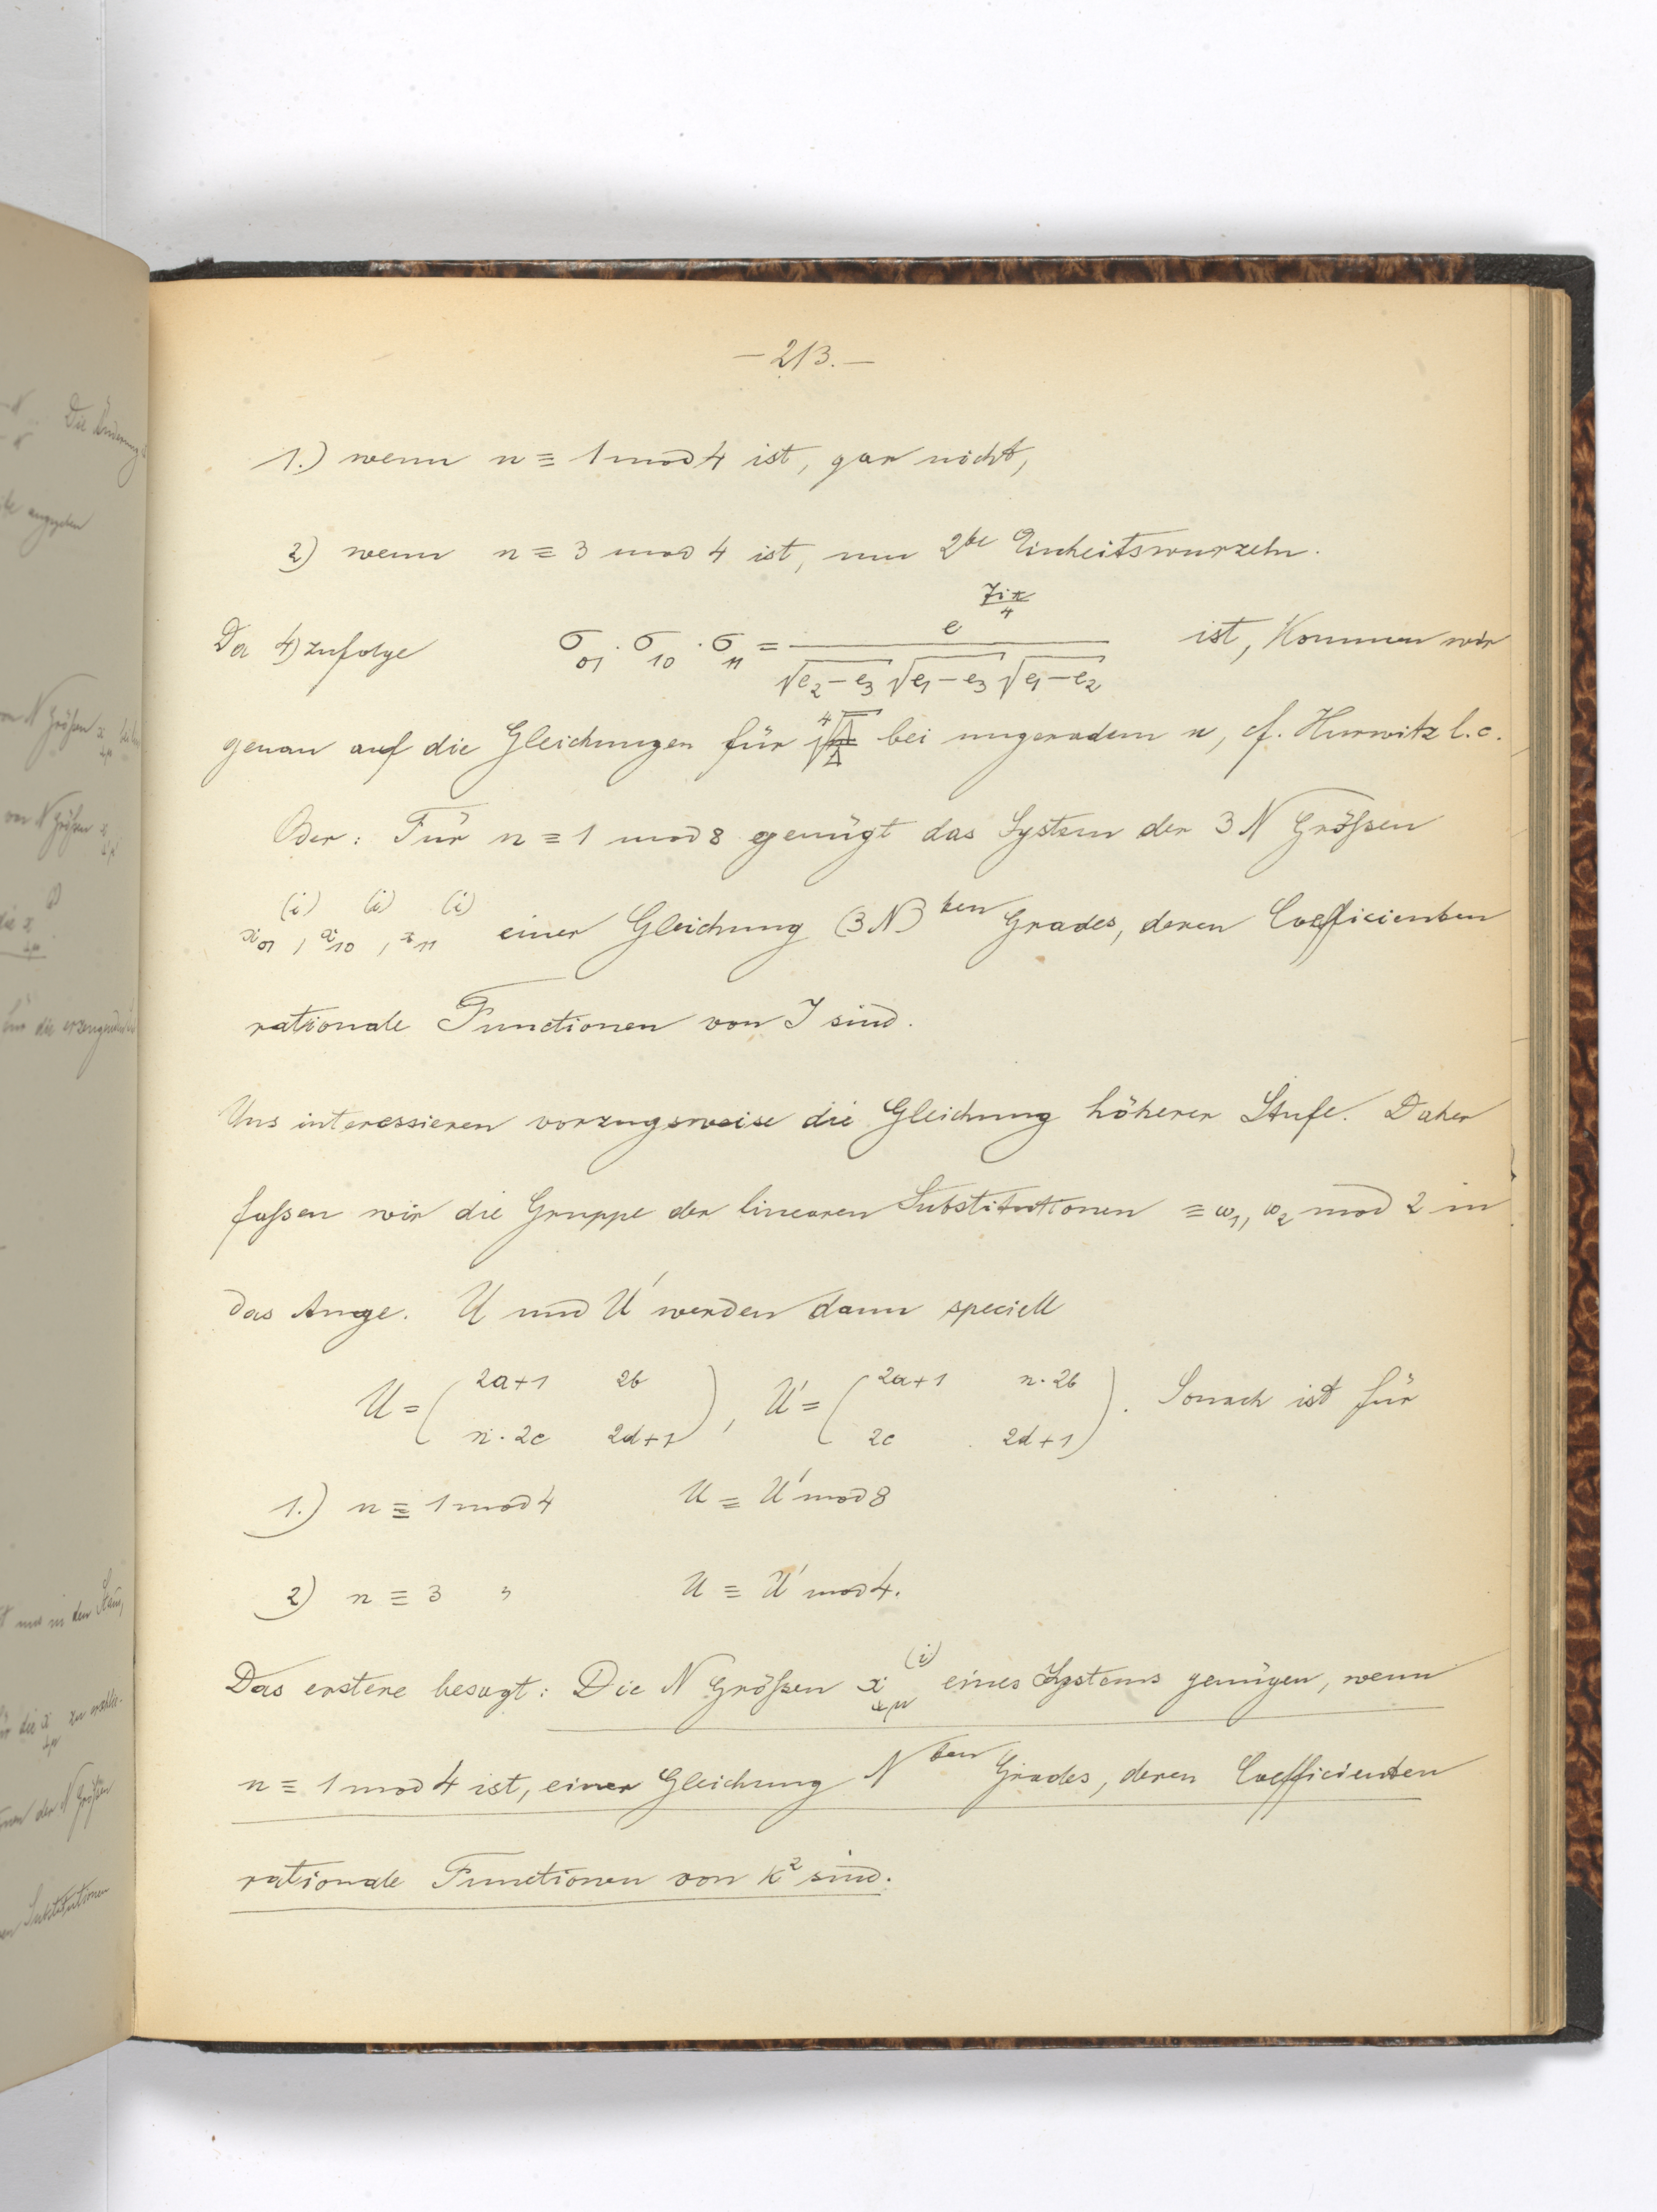 — 213. —
1.) wenn n ≡ 1 mod 4 ist, gar nicht,
2) wenn n ≡ 3 mod 4 ist, um 2te Einheitswurzeln.
Da 4) zufolge σ₀₁ · σ₁₀ · σ₁₁ = e^{7iπ/4} / (√(e₂−e₃) √(e₁−e₃) √(e₁−e₂)) ist, kommen wir
genau auf die Gleichungen für bei ungeradem n, cf. Hurwitz l. c.
Oder: Für n ≡ 1 mod 8 genügt das System der 3 N Größen
x₀₁^{(i)}, x₁₀^{(i)}, x₁₁^{(i)} einer Gleichung (3N)ten Grades, deren Coefficienten
rationale Functionen von J sind.
Uns interessieren vorzugsweise die Gleichung höherer Stufe. Daher
faßen wir die Gruppe der linearen Substitutionen ≡ ω₁, ω₂ mod 2 in
das Auge. U und U' werden dann speciell
U = ( 2a+1 2b ), U' = ( 2a+1 n·2b ). Sonach ist für
n·2c 2d+1 2c 2d+1
1.) n ≡ 1 mod 4 U ≡ U' mod 8
2) n ≡ 3 " U ≡ U' mod 4.
Das erstere besagt: Die N Größen x^{(i)}_{λμ} eines Systems genügen, wenn
n ≡ 1 mod 4 ist, einer Gleichung Nten Grades, deren Coefficienten
rationale Functionen von k² sind.